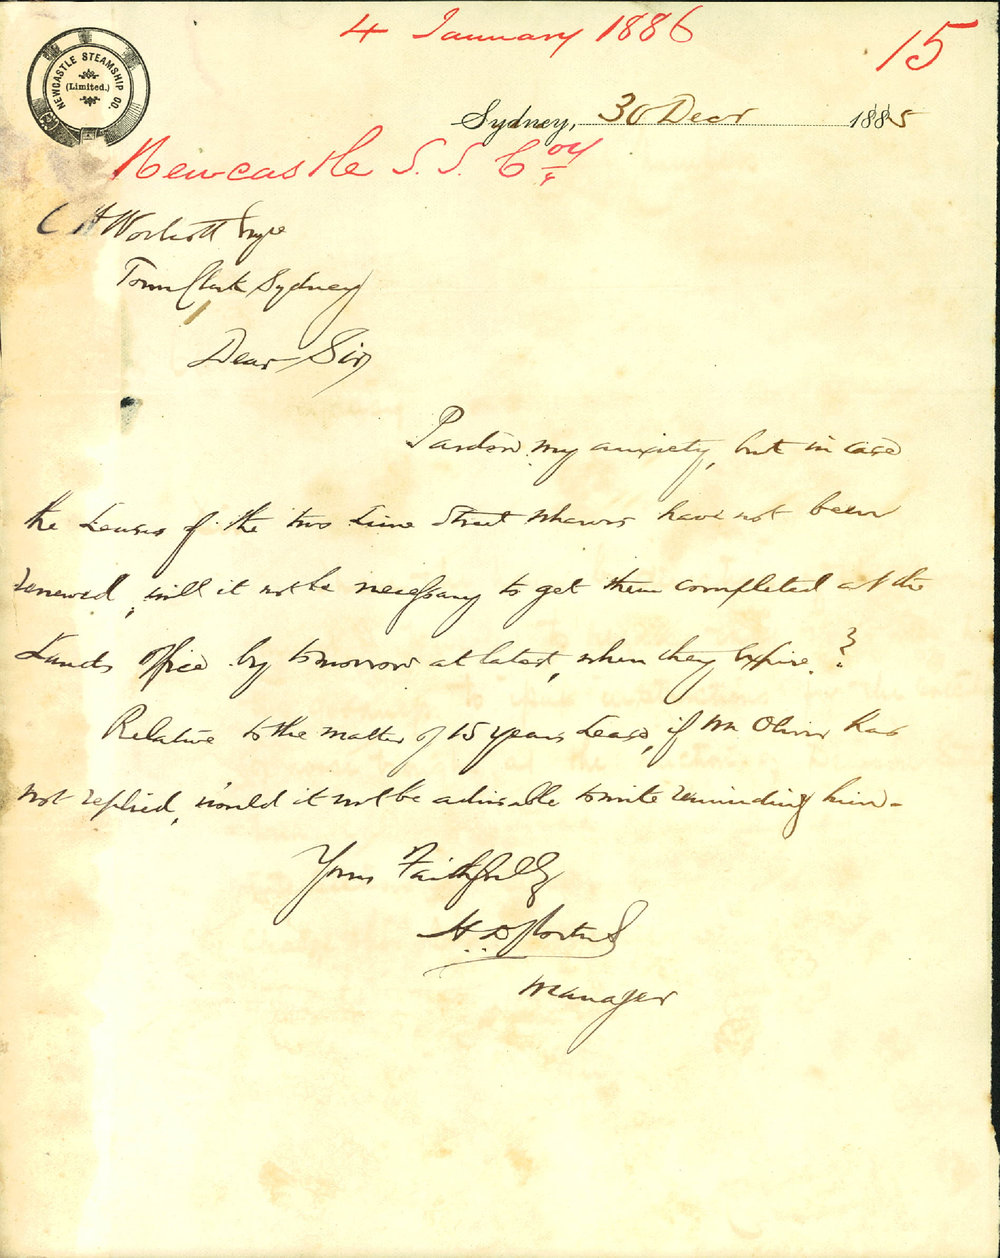 4 January 1886
15
NEWCASTLE STEAMSHIP CO.
(Limited.)
Sydney, 30 Decr 1885
Newcastle S. S. Coy
C H Woolcott Esqre
Town Clerk Sydney
Dear Sir
Pardon my anxiety, but in case
the Leases of the two Lime Street Wharves have not been
renewed, will it not be necessary to get them completed at the
Lands Office by tomorrow at latest, when they expire?
Relative to the matter of 15 years Lease, if Mr Oliver has
not replied, would it not be advisable to write reminding him -
Yours Faithfully
H. D. Portus
Manager